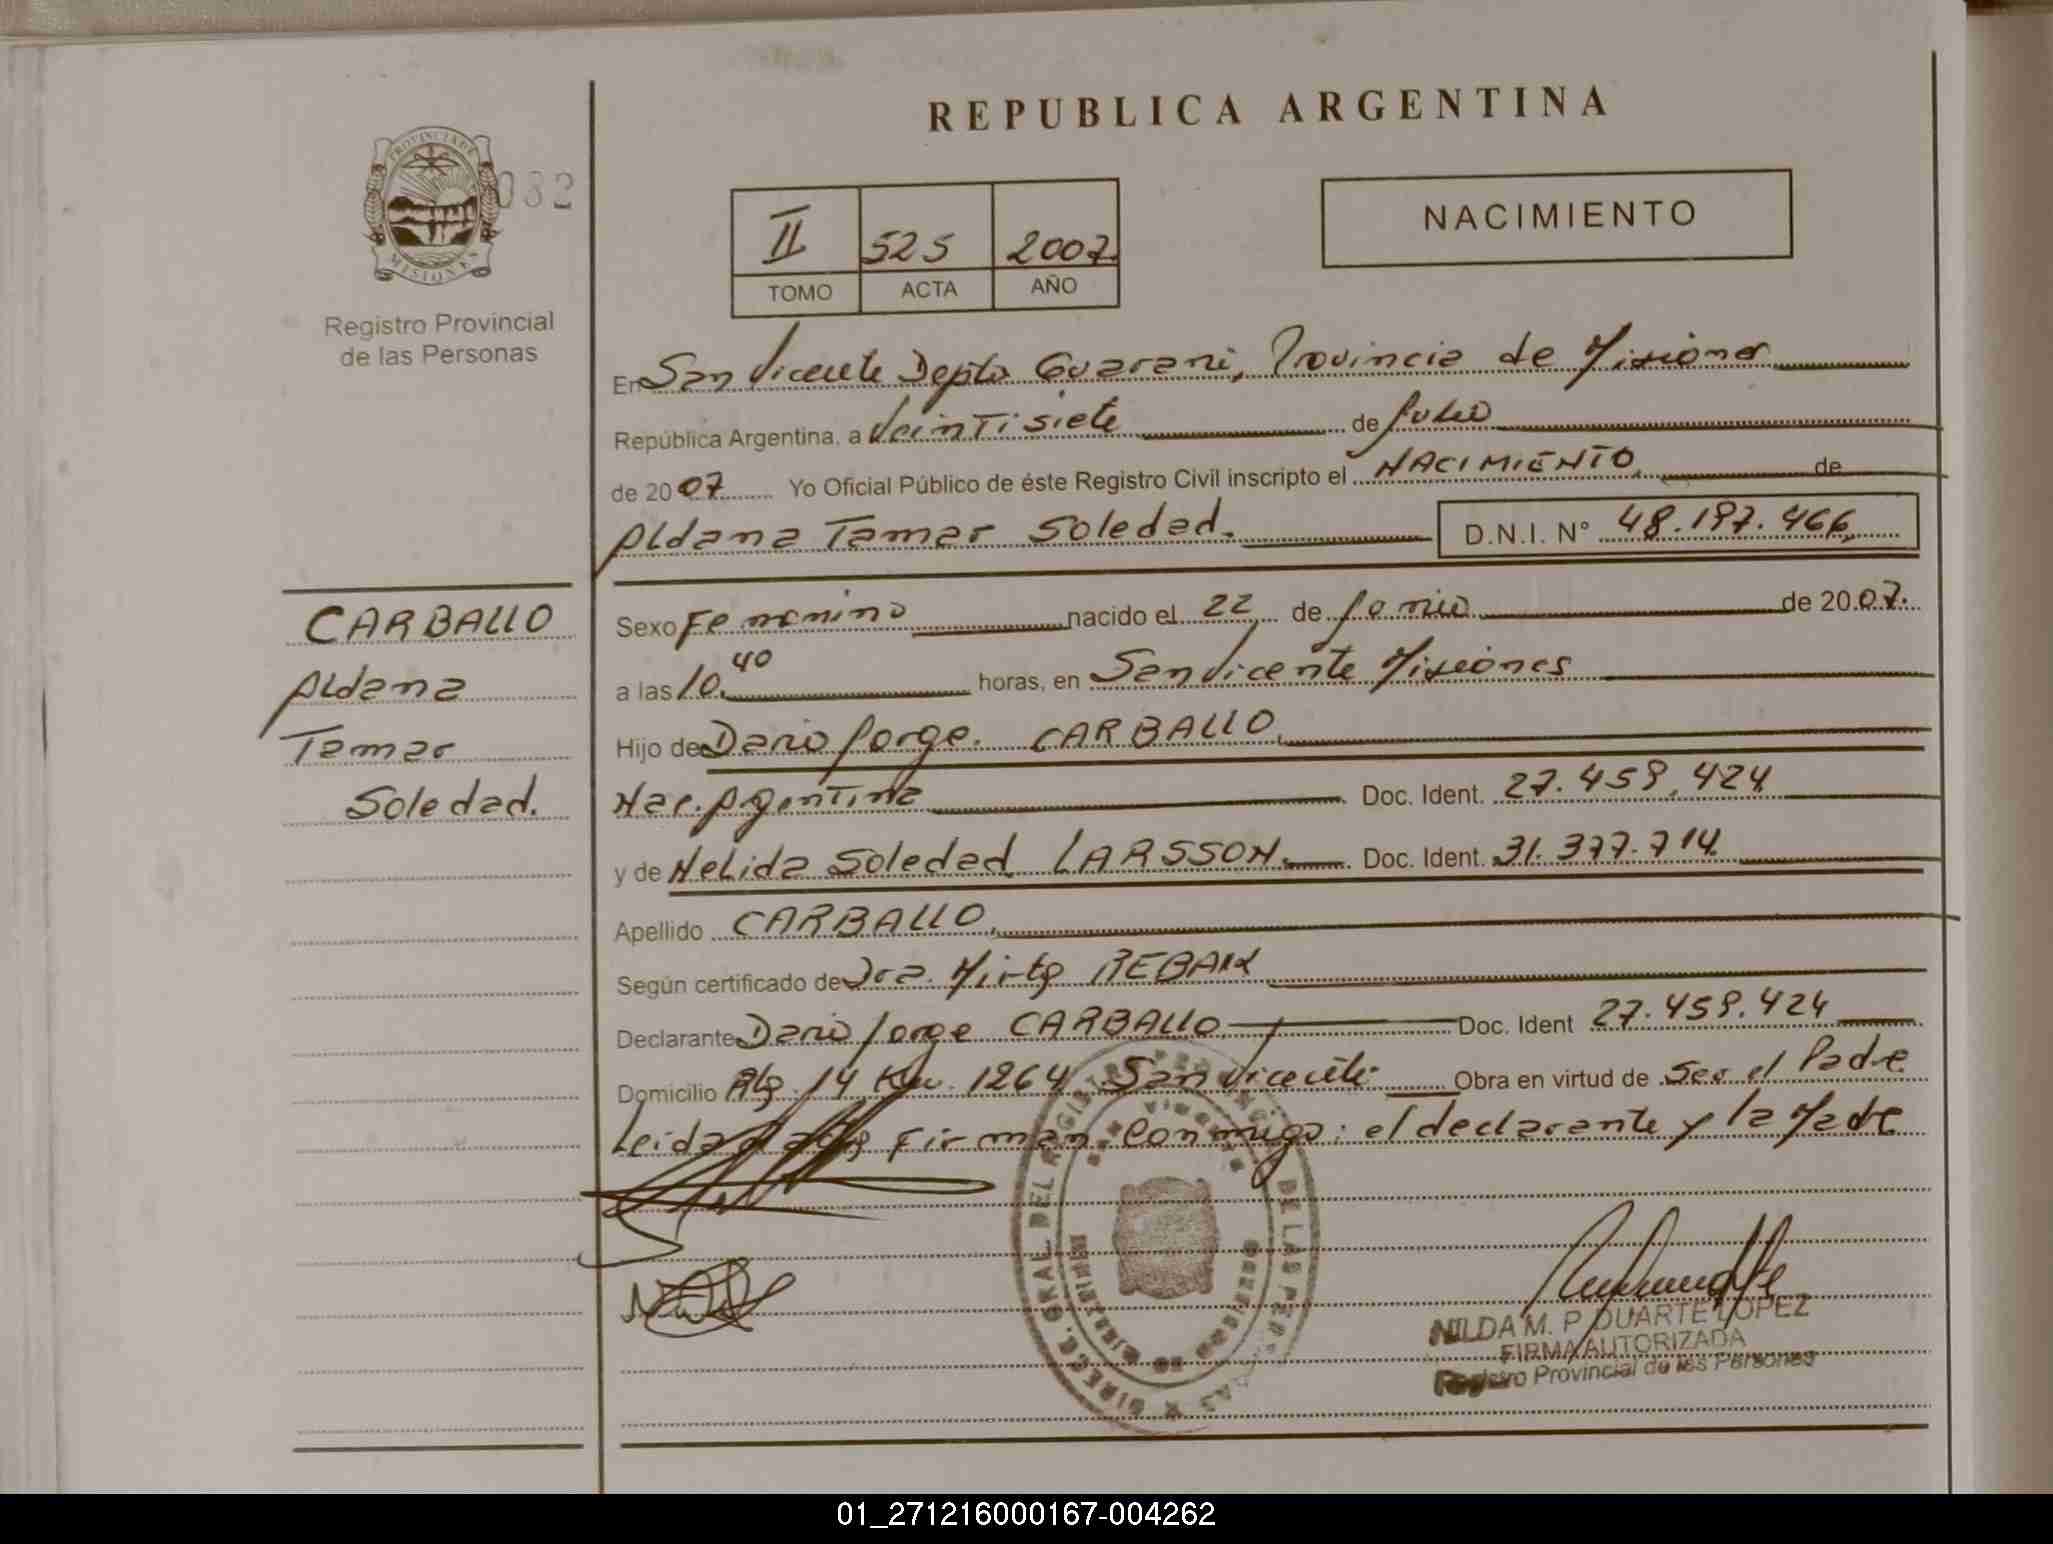 REPUBLICA ARGENTINA
PROVINCIA DE
MISIONES
032
Registro Provincial
de las Personas
NACIMIENTO
II 525 2007
TOMO ACTA AÑO
En San Vicente Depto Guarani, Provincia de Misiones
República Argentina, a Veintisiete de Julio
de 2007 Yo Oficial Público de éste Registro Civil inscripto el NACIMIENTO de
Aldana Tamar Soledad. D.N.I. N° 48.197.466
CARBALLO
Aldana
Tamar
Soledad.
Sexo Femenino nacido el 22 de Junio de 2007.
a las 10.40 horas, en San Vicente Misiones
Hijo de Dario Jorge. CARBALLO
Nac. Argentina Doc. Ident. 27.459.424
y de Nelida Soledad LARSSON. Doc. Ident. 31.377.714.
Apellido CARBALLO
Según certificado de Dra. Mirta
Declarante Dario Jorge CARBALLO Doc. Ident 27.459.424
Domicilio 14 Km. 1264 San Vicente Obra en virtud de Ser el Padre
Leida firman conmigo: el declarante y la Madre
NILDA M. P. DUARTE LOPEZ
FIRMA AUTORIZADA
Registro Provincial de las Personas
01_271216000167-004262